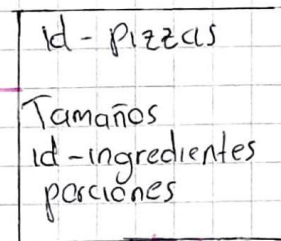 id - pizzas
Tamaños
id - ingredientes
porciones